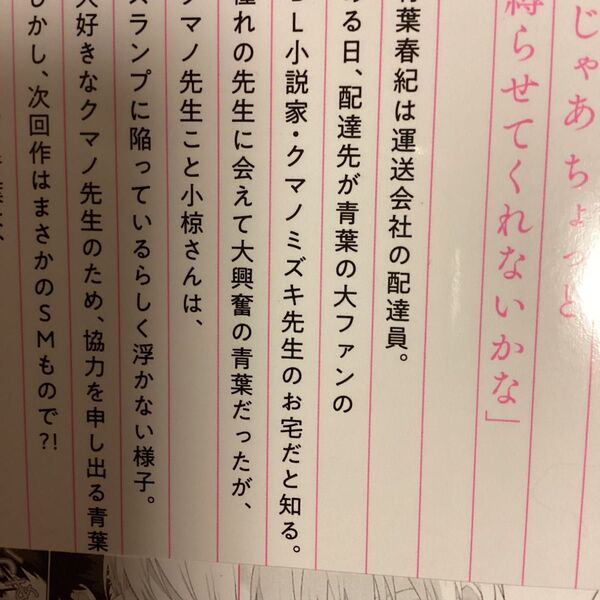 じゃあちょっと
縛らせてくれないかな」
青葉春紀は運送会社の配達員。
ある日、配達先が青葉の大ファンの
BL小説家・クマノミズキ先生のお宅だと知る。
憧れの先生に会えて大興奮の青葉だったが、
クマノ先生こと小椋さんは、
スランプに陥っているらしく浮かない様子。
大好きなクマノ先生のため、協力を申し出る青葉
しかし、次回作はまさかのSMもので?!